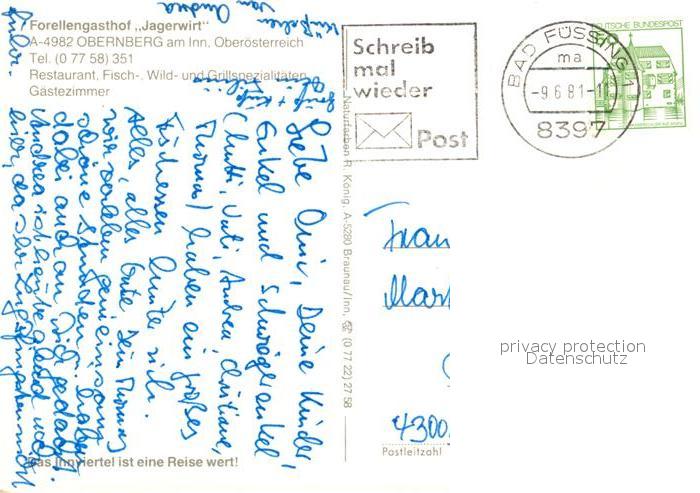 Forellengasthof „Jagerwirt"
A-4982 OBERNBERG am Inn, Oberösterreich
Tel. (0 77 58) 351
Restaurant, Fisch-, Wild- und Grillspezialitäten
Gästezimmer
Schreib
mal
wieder
Post
BAD FÜSSING 1
ma
-9.6.81-1
8397
DEUTSCHE BUNDESPOST
Liebe Omi, Deine Kinder,
Enkel und Schwiegerenkel
(Mutti, Vati, Andrea, Christiane,
Thomas) haben ein großes
Fischessen hinter sich.
Alles, alles Gute Dein Thomas
wir verleben gemeinsam
schöne Stunden
dabei auch an Dich gedacht
Andrea
von Andrea
Naturfarben R. König, A-5280 Braunau/Inn, (0 77 22) 27 58
Frau
Mar
4300
Postleitzahl
privacy protection
Datenschutz
Das Innviertel ist eine Reise wert!